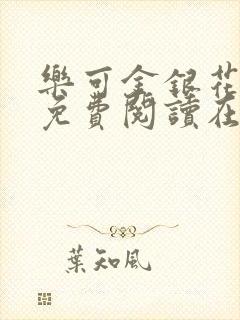 樂可金銀花
免費閱讀在
葉知風